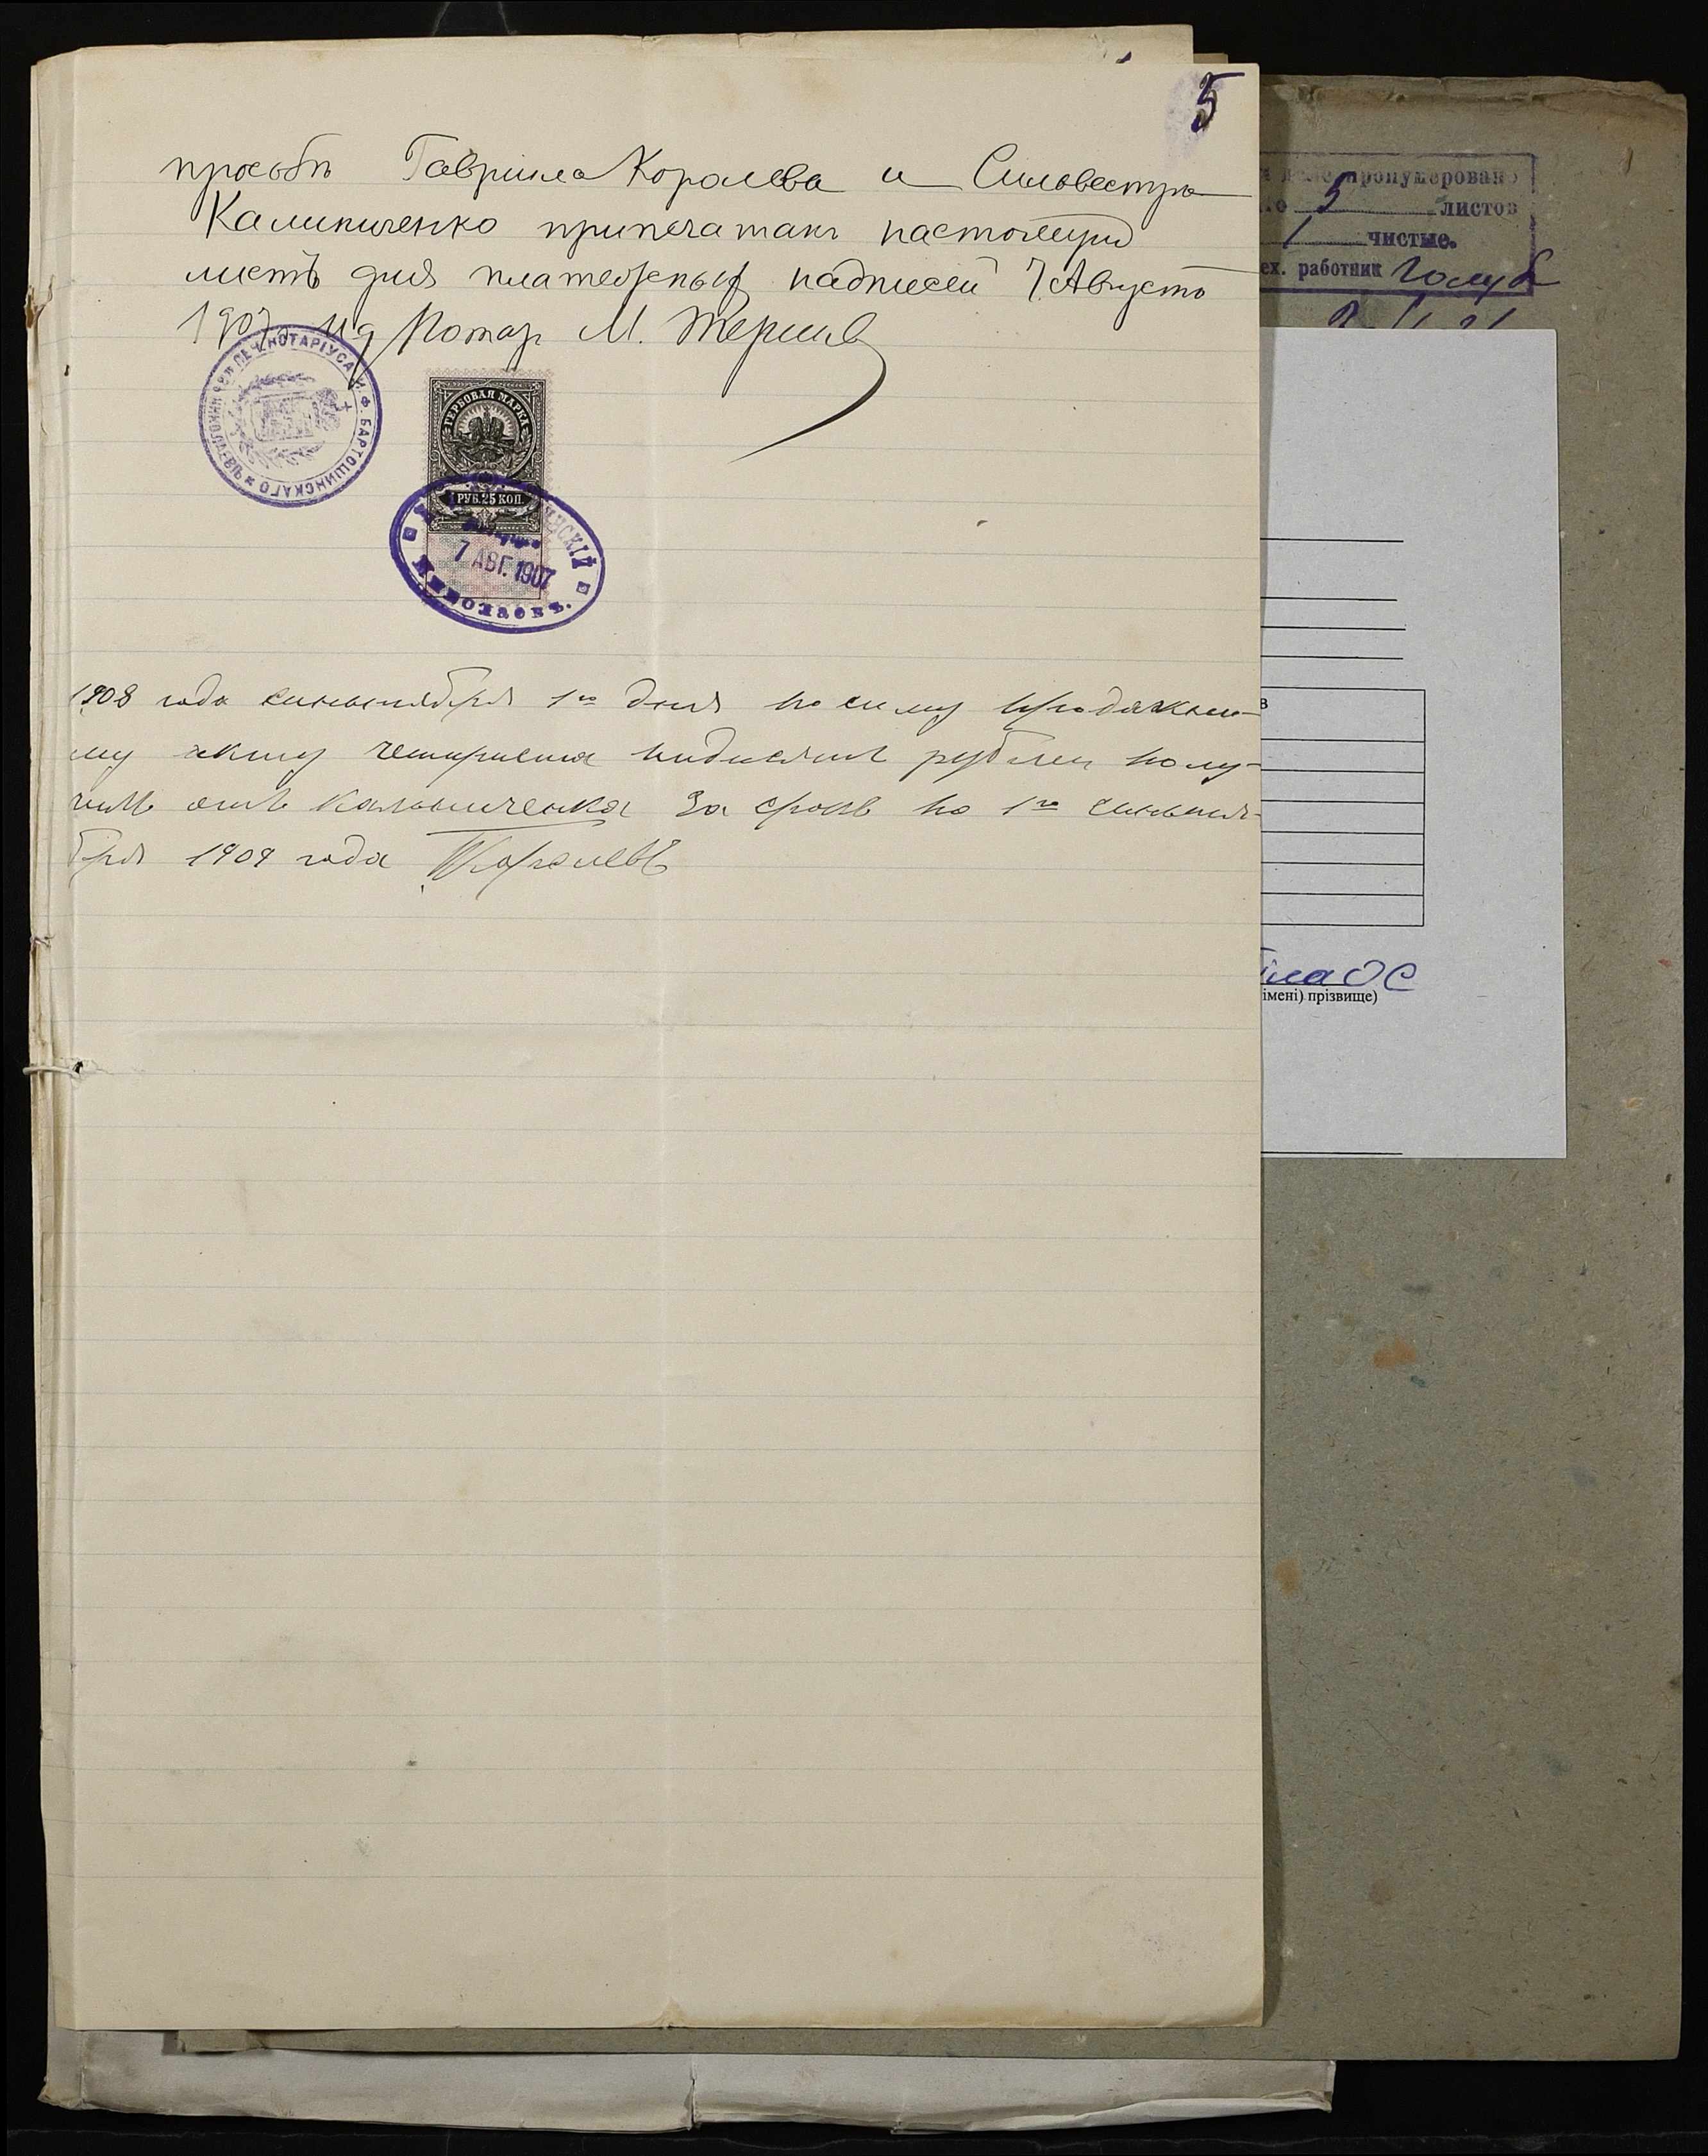 5
просьбѣ Гавріила Королева и Сильвестра
Калиниченко припечатанъ настоящій
листъ для платежныхъ надписей 7 Августа
1907 г. И д Нотар М.
ПЕЧ. НОТАРІУСА И. Ф. БАРТОШИНСКАГО
ГЕРБОВАЯ МАРКА
1 РУБ. 25 КОП.
НСКІЙ
7 АВГ. 1907
Николаевъ.
1908 года сентября 1го дня по сему продажно-
му акту четыреста рублей полу-
чилъ отъ Калиниченка за срокъ по 1го сентя-
бря 1909 года Королевъ
деле пронумеровано
5 листов
1 чистые.
ех. работник Голуб
в
імені) прізвище)